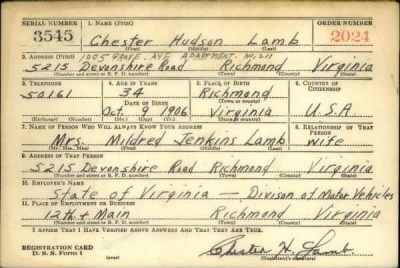 SERIAL NUMBER 1. NAME (Print) ORDER NUMBER
3545 Chester Hudson Lamb 2024
(First) (Middle) (Last)
1005 Grove Ave Apartment No. 211
2. ADDRESS (Print)
5215 Devonshire Road Richmond Virginia
(Number and street or R. F. D. number) (Town) (County) (State)
3. TELEPHONE 4. AGE IN YEARS 5. PLACE OF BIRTH 6. COUNTRY OF CITIZENSHIP
50161 34 Richmond
DATE OF BIRTH (Town or county)
Oct. 9 1906 Virginia U.S.A.
(Exchange) (Number) (Mo.) (Day) (Yr.) (State or country)
7. NAME OF PERSON WHO WILL ALWAYS KNOW YOUR ADDRESS 8. RELATIONSHIP OF THAT PERSON
Mrs. Mildred Jenkins Lamb wife
(Mr., Mrs., Miss) (First) (Middle) (Last)
9. ADDRESS OF THAT PERSON
5215 Devonshire Road Richmond Virginia
(Number and street or R. F. D. number) (Town) (County) (State)
10. EMPLOYER'S NAME
State of Virginia Divison of Motor Vehicles
11. PLACE OF EMPLOYMENT OR BUSINESS
12th & Main Richmond Virginia
(Number and street or R. F. D. number) (Town) (County) (State)
I AFFIRM THAT I HAVE VERIFIED ABOVE ANSWERS AND THAT THEY ARE TRUE.
REGISTRATION CARD
D. S. S. Form 1 (over) Chester H. Lamb
(Registrant's signature)